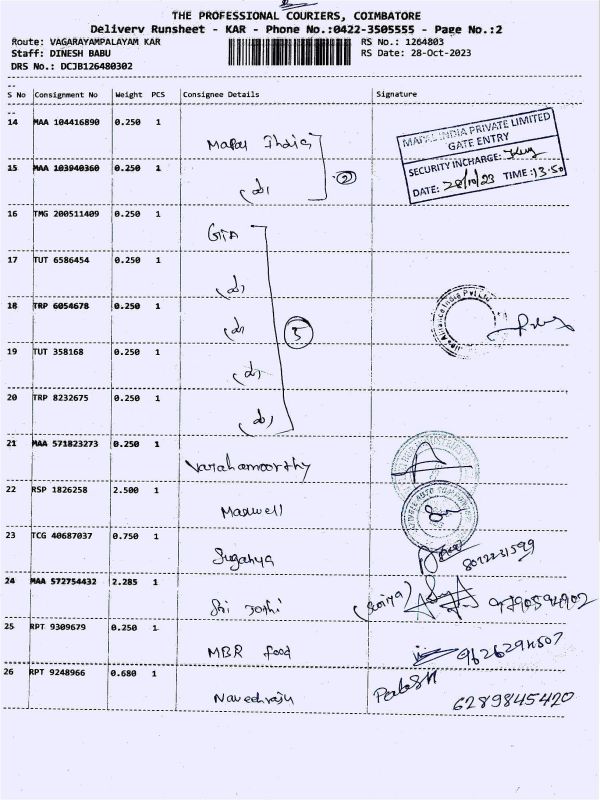 THE PROFESSIONAL COURIERS, COIMBATORE
Delivery Runsheet - KAR - Phone No.:0422-3505555 - Page No.:2
Route: VAGARAYAMPALAYAM KAR RS No.: 1264803
Staff: DINESH BABU RS Date: 28-Oct-2023
DRS No.: DCJB126480302
S No Consignment No Weight PCS Consignee Details Signature
14 MAA 104416890 0.250 1
INDIA PRIVATE LIMITED
GATE ENTRY
SECURITY INCHARGE:
DATE: 28/10/23 TIME :13.50
15 MAA 103940360 0.250 1
2
16 TMG 200511409 0.250 1
17 TUT 6586454 0.250 1
18 TRP 6054678 0.250 1
5
19 TUT 358168 0.250 1
20 TRP 8232675 0.250 1
21 MAA 571823273 0.250 1 Varahamoorthy
22 RSP 1826258 2.500 1 Maxwell
23 TCG 40687037 0.750 1 Suganya
24 MAA 572754432 2.285 1 Sri Joshi
25 RPT 9309679 0.250 1 MBR food
26 RPT 9248966 0.680 1
6289845420